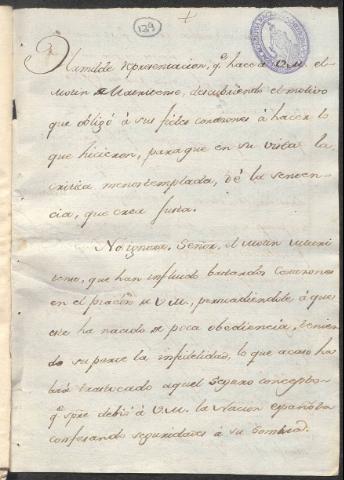 129
Humilde representacion, qe hace a V.M. el
Motin Matritense, descubriendo el motivo
que obligó á sus fieles corazones á hacer lo
que hicieron, para que en su vista la
critica menos templada, dé la senten-
cia, que crea justa.
No ignora, Señor, el Motin Matri
tense, que han influido bastardos corazones
en el piadoso de V.M., persuadiendole á que
este ha nacido de poca obediencia, tenien
do su parte la infidelidad, lo que acaso ha
brá trastocado aquel seguro concepto
qe spre debió á V.M. la Nacion española
confesando seguridades á su